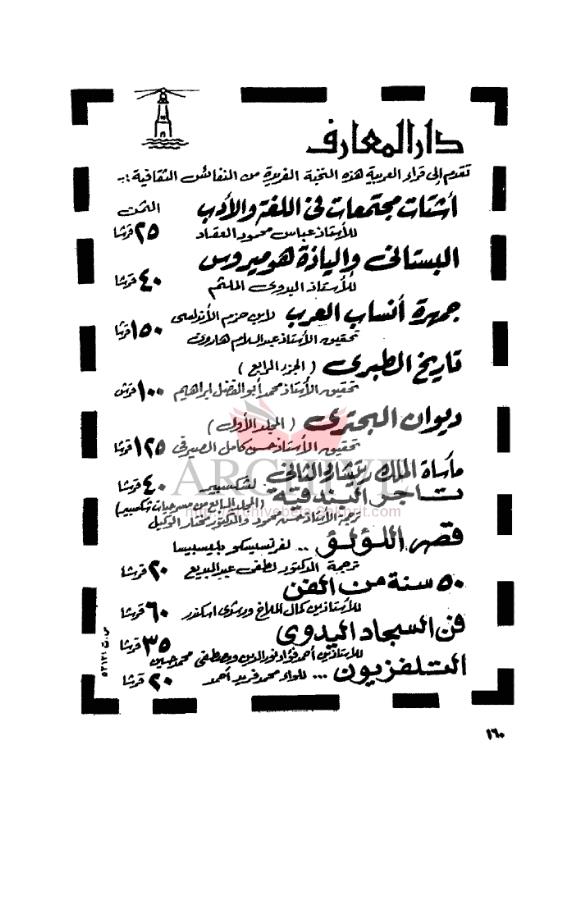 دار المعارف
تقدم إلى قراء العربية هذه النخبة الفريدة من النفائس الثقافية :ـ
أشتات مجتمعات فى اللغة والأدب الثمن
للأستاذ عباس محمود العقاد ٢٥ قرشا
البستانى وإلياذة هوميروس
للأستاذ البدوى الملثم ٤٠ قرشا
جمهرة أنساب العرب لابن حزم الأندلسى
تحقيق الأستاذ عبد السلام هارون ١٥٠ قرشا
تاريخ الطبرى ( الجزء الرابع )
تحقيق الأستاذ محمد أبو الفضل ابراهيم ١٠٠ قرش
ديوان البحترى ( المجلد الأول )
تحقيق الأستاذ حسن كامل الصيرفى ١٢٥ قرشا
مأساة الملك ريتشارد الثانى
تاجر البندقية لشكسبير ٤٠ قرشا
(المجلد السابع من مسرحيات شكسبير)
ترجمة الأستاذ حسن محمود والدكتور مختار الوكيل
ARCHIVE
قصر اللؤلؤ .. لفرنسيسكو بليسبيسا
ترجمة الدكتور لطفى عبد البديع ٢٠ قرشا
٥٠ سنة من الفن
للأستاذين كمال الملاخ ورشدى اسكندر ٦٠ قرشا
فن السجاد اليدوى
للأستاذين أحمد فؤاد نور الدين ومصطفى محمد حسين ٣٥ قرشا
التلفزيون ... للواء محمد فريد أحمد ٢٠ قرشا
س.ت ٥٣١٢١
١٦٠